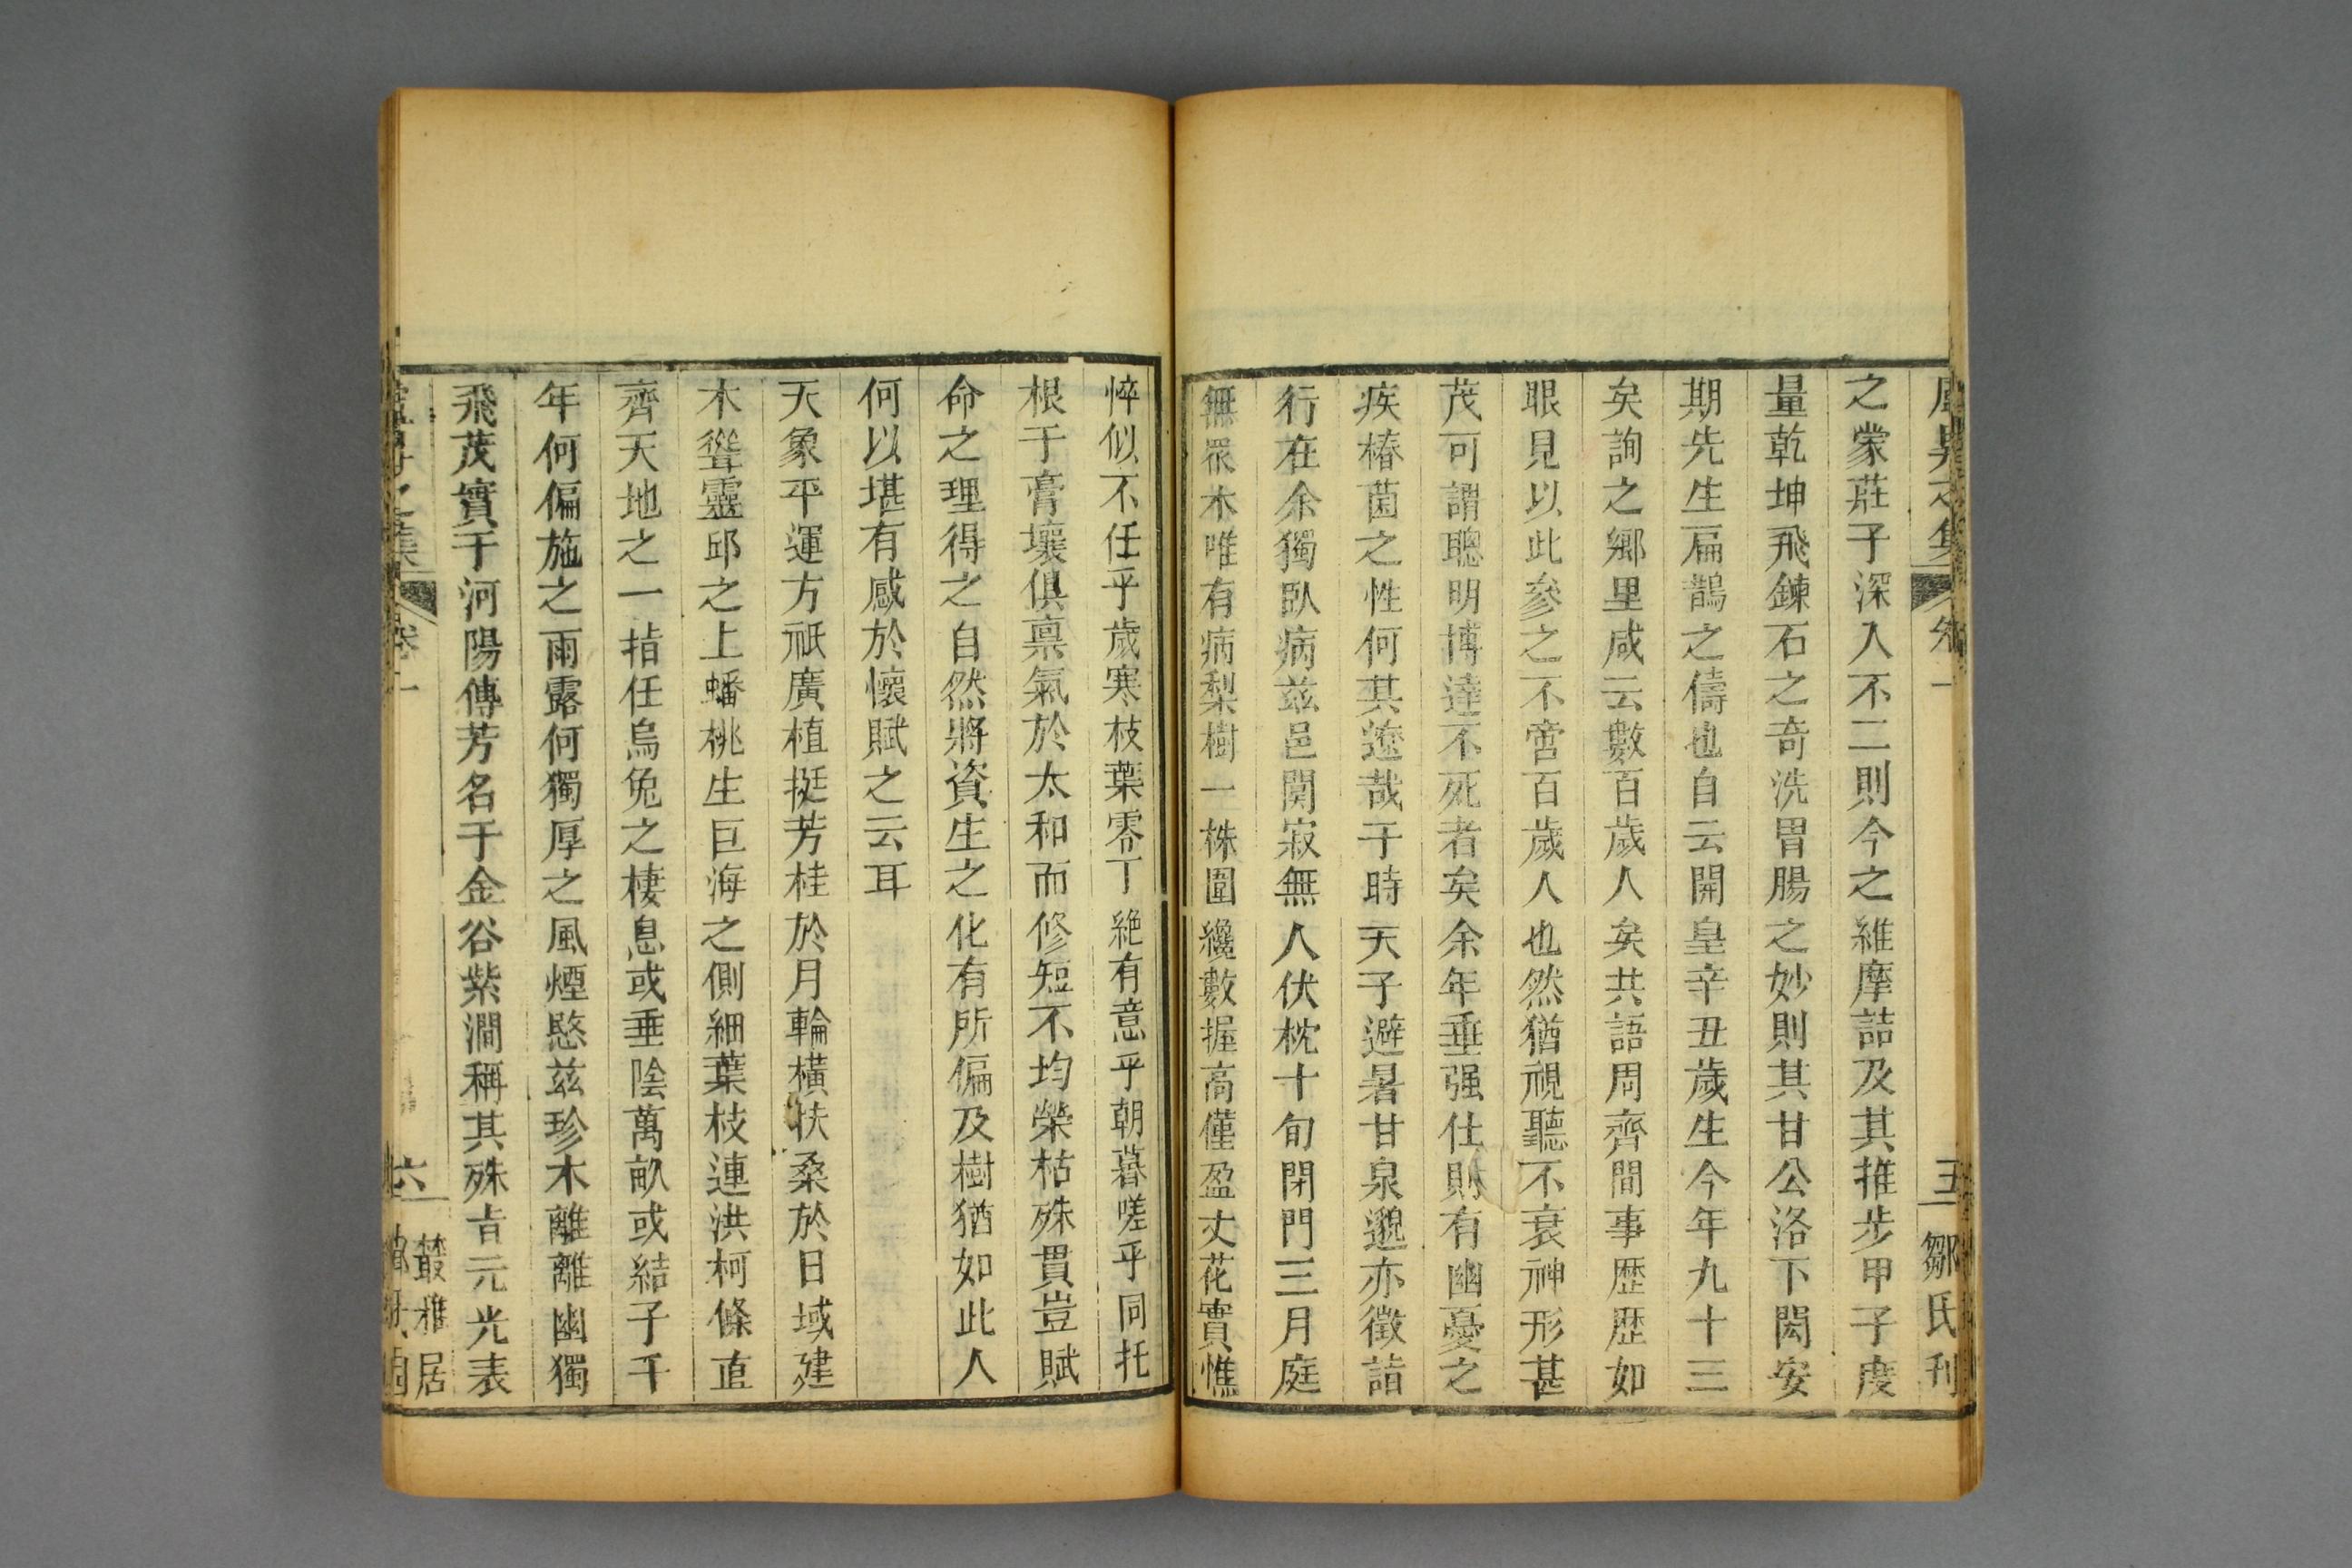 盧昇之集 卷一 五 鄒氏刊
之蒙莊子深入不二則今之維摩詰及其推步甲子度
量乾坤飛鍊石之奇洗胃腸之妙則其甘公洛下閎安
期先生扁鵲之儔也自云開皇辛丑歲生今年九十三
矣詢之鄉里咸云數百歲人矣共語周齊間事歷歷如
眼見以此參之不啻百歲人也然猶視聽不衰神形甚
茂可謂聰明博達不死者矣余年垂强仕則有幽憂之
疾椿菌之性何其遼哉于時天子避暑甘泉邈亦徵詣
行在余獨臥病兹邑闃寂無人伏枕十旬閉門三月庭
無眾木唯有病梨樹一株圍纔數握高僅盈丈花實憔
悴似不任乎歲寒枝葉零丁絶有意乎朝暮嗟乎同托
根于膏壤俱禀氣於太和而修短不均榮枯殊貫豈賦
命之理得之自然將資生之化有所偏及樹猶如此人
何以堪有感於懷賦之云耳
天象平運方祇廣植挺芳桂於月輪橫扶桑於日域建
木聳靈邱之上蟠桃生巨海之側細葉枝連洪柯條直
齊天地之一指任烏兔之棲息或垂陰萬畝或結子千
年何偏施之雨露何獨厚之風煙愍兹珍木離離幽獨
飛茂實于河陽傳芳名于金谷紫澗稱其殊旨元光表
之集 卷一 六 叢雅居